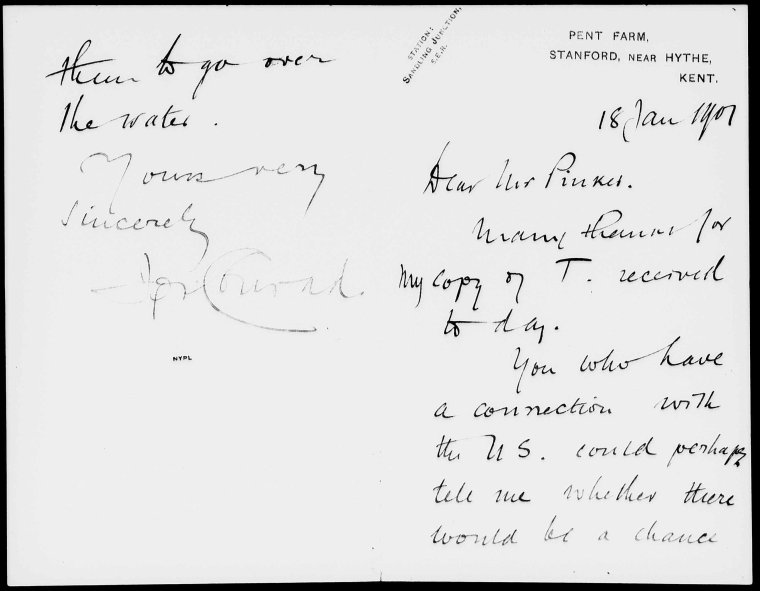 STATION:
SANDLING JUNCTION,
S.E.R.
PENT FARM,
STANFORD, NEAR HYTHE,
KENT.
18 Jan 1901
Dear Mr Pinker.
Many thanks for
my copy of T. received
to day.
You who have
a connection with
the U S. could perhaps
tell me whether there
would be a chance
them to go over
the water.
Yours very
sincerely
Conrad.
NYPL